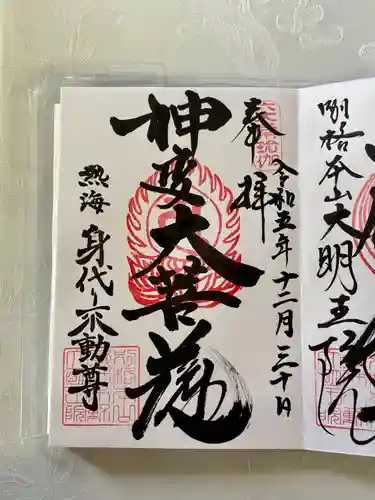 別格本山大明王院
奉拝
令和五年十二月三十日
神変大菩薩
熱海 身代り不動尊